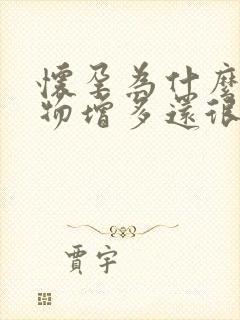 懷孕為什麼
物增多還很
賈宇